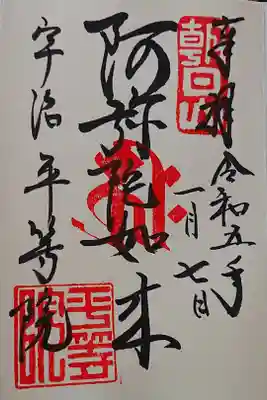 奉拝
令和五年
一月七日
朝日山
阿弥陀如来
宇治
平等院
平等院